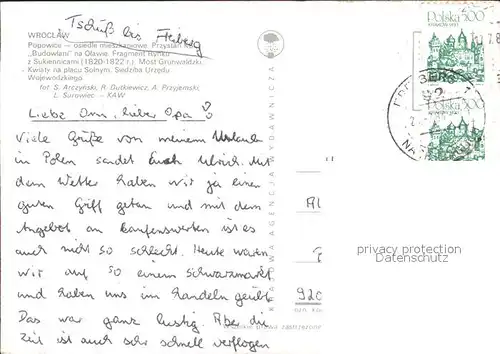 Tschüß bis Freiberg
WROCŁAW
Popowice — osiedle mieszkaniowe. Przystań
„Budowlani” na Oławie. Fragment Rynku
z Sukiennicami (1820-1822 r.). Most Grunwaldzki.
Kwiaty na placu Solnym. Siedziba Urzędu
Wojewódzkiego.
fot. S. Arczyński, R. Dutkiewicz, A. Przyjemski,
L. Surowiec — KAW
Polska 500
Polska 500
Liebe Omi, lieber Opa
Viele Grüße von meinem Urlaub
in Polen sendet Euch Ulrich. Mit
dem Wetter haben wir ja einen
guten Griff getan und mit dem
Angebot an kaufenswerten ist es
auch nicht so schlecht. Heute waren
wir auf so einem Schwarzmarkt
und haben uns im Handeln geübt.
Das war ganz lustig. Aber die
Zeit ist auch sehr schnell verflogen
KRAJOWA AGENCJA WYDAWNICZA
920
privacy protection
Datenschutz